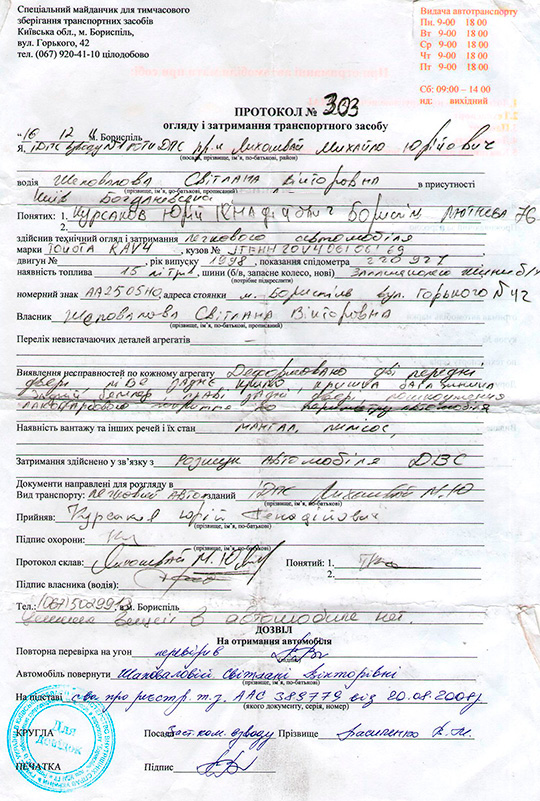 Спеціальний майданчик для тимчасового
зберігання транспортних засобів
Київська обл., м. Бориспіль,
вул. Горького, 42
тел. (067) 920-41-10 цілодобово
Видача автотранспорту
Пн. 9-00 18 00
Вт 9-00 18 00
Ср 9-00 18 00
Чт 9-00 18 00
Пт 9-00 18 00
Сб: 09:00 – 14 00
нд: вихідний
ПРОТОКОЛ № 303
огляду і затримання транспортного засобу
"16 12 м. Бориспіль
Я, ІДПС взводу Лихошвай Михайло Юрійович
(посада, прізвище, ім'я, по-батькові, район)
водія Шаповалова Світлана Вікторовна в присутності
(прізвище, ім'я, по-батькові, прописка)
Понятих: 1. Курсаков Юрій
2.
здійснив технічний огляд і затримання легкового автомобіля
марки Toyota RAV4, кузов №
двигун № , рік випуску 1998, показання спідометра 220927
наявність топлива 15 літрів, шини (б/в, запасне колесо, нові)
(потрібне підкреслити)
номерний знак АА2505НО, адреса стоянки м. Бориспіль вул. Горького № 42
Власник Шаповалова Світлана Вікторовна
(прізвище, ім'я, по-батькові, прописаний)
Перелік невистачаючих деталей агрегатів
Виявлення несправностей по кожному агрегату Деформовано дві передні
двері, ліве заднє крило, кришка багажника
задній бампер, праві задні двері, пошкодження
лакофарбового покриття по периметру автомобіля
Наявність вантажу та інших речей і їх стан мангал, пилісос,
Затримання здійснено у зв'язку з розшук автомобіля ДВС
Документи направлені для розгляду в
Вид транспорту: легковий авто зданий ІДПС Лихошвай М.Ю
Прийняв: Курсаков Юрій Генадійович
(прізвище, ім'я, по-батькові)
Підпис охорони:
Протокол склав: Лихошвай М. Ю. Понятий: 1.
(прізвище, ім'я, по-батькові) 2.
Підпис власника (водія):
Тел.: (067) м. Бориспіль
вещей в автомобиле нет.
ДОЗВІЛ
На отримання автомобіля
Повторна перевірка на угон перевірив
(підпис)
Автомобіль повернути Шаповаловій Світлані Вікторівні
(прізвище, ім'я, по-батькові)
На підставі св. про реєстр. т.з. ААС 389779 від 20.08.2008р
(якого документу, серія, номер)
КРУГЛА Посада Заст. ком. взводу Прізвище Василенко
ПЕЧАТКА Підпис
Для довідок